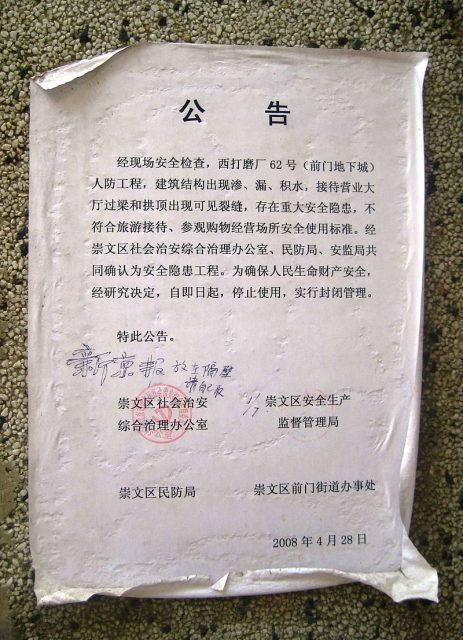 公 告
经现场安全检查，西打磨厂 62 号（前门地下城）
人防工程，建筑结构出现渗、漏、积水，接待营业大
厅过梁和拱顶出现可见裂缝，存在重大安全隐患，不
符合旅游接待、参观购物经营场所安全使用标准。经
崇文区社会治安综合治理办公室、民防局、安监局共
同确认为安全隐患工程。为确保人民生命财产安全，
经研究决定，自即日起，停止使用，实行封闭管理。
特此公告。
新京报 放在隔壁
崇文区社会治安
综合治理办公室
1/7
崇文区安全生产
监督管理局
崇文区民防局
崇文区前门街道办事处
2008 年 4 月 28 日